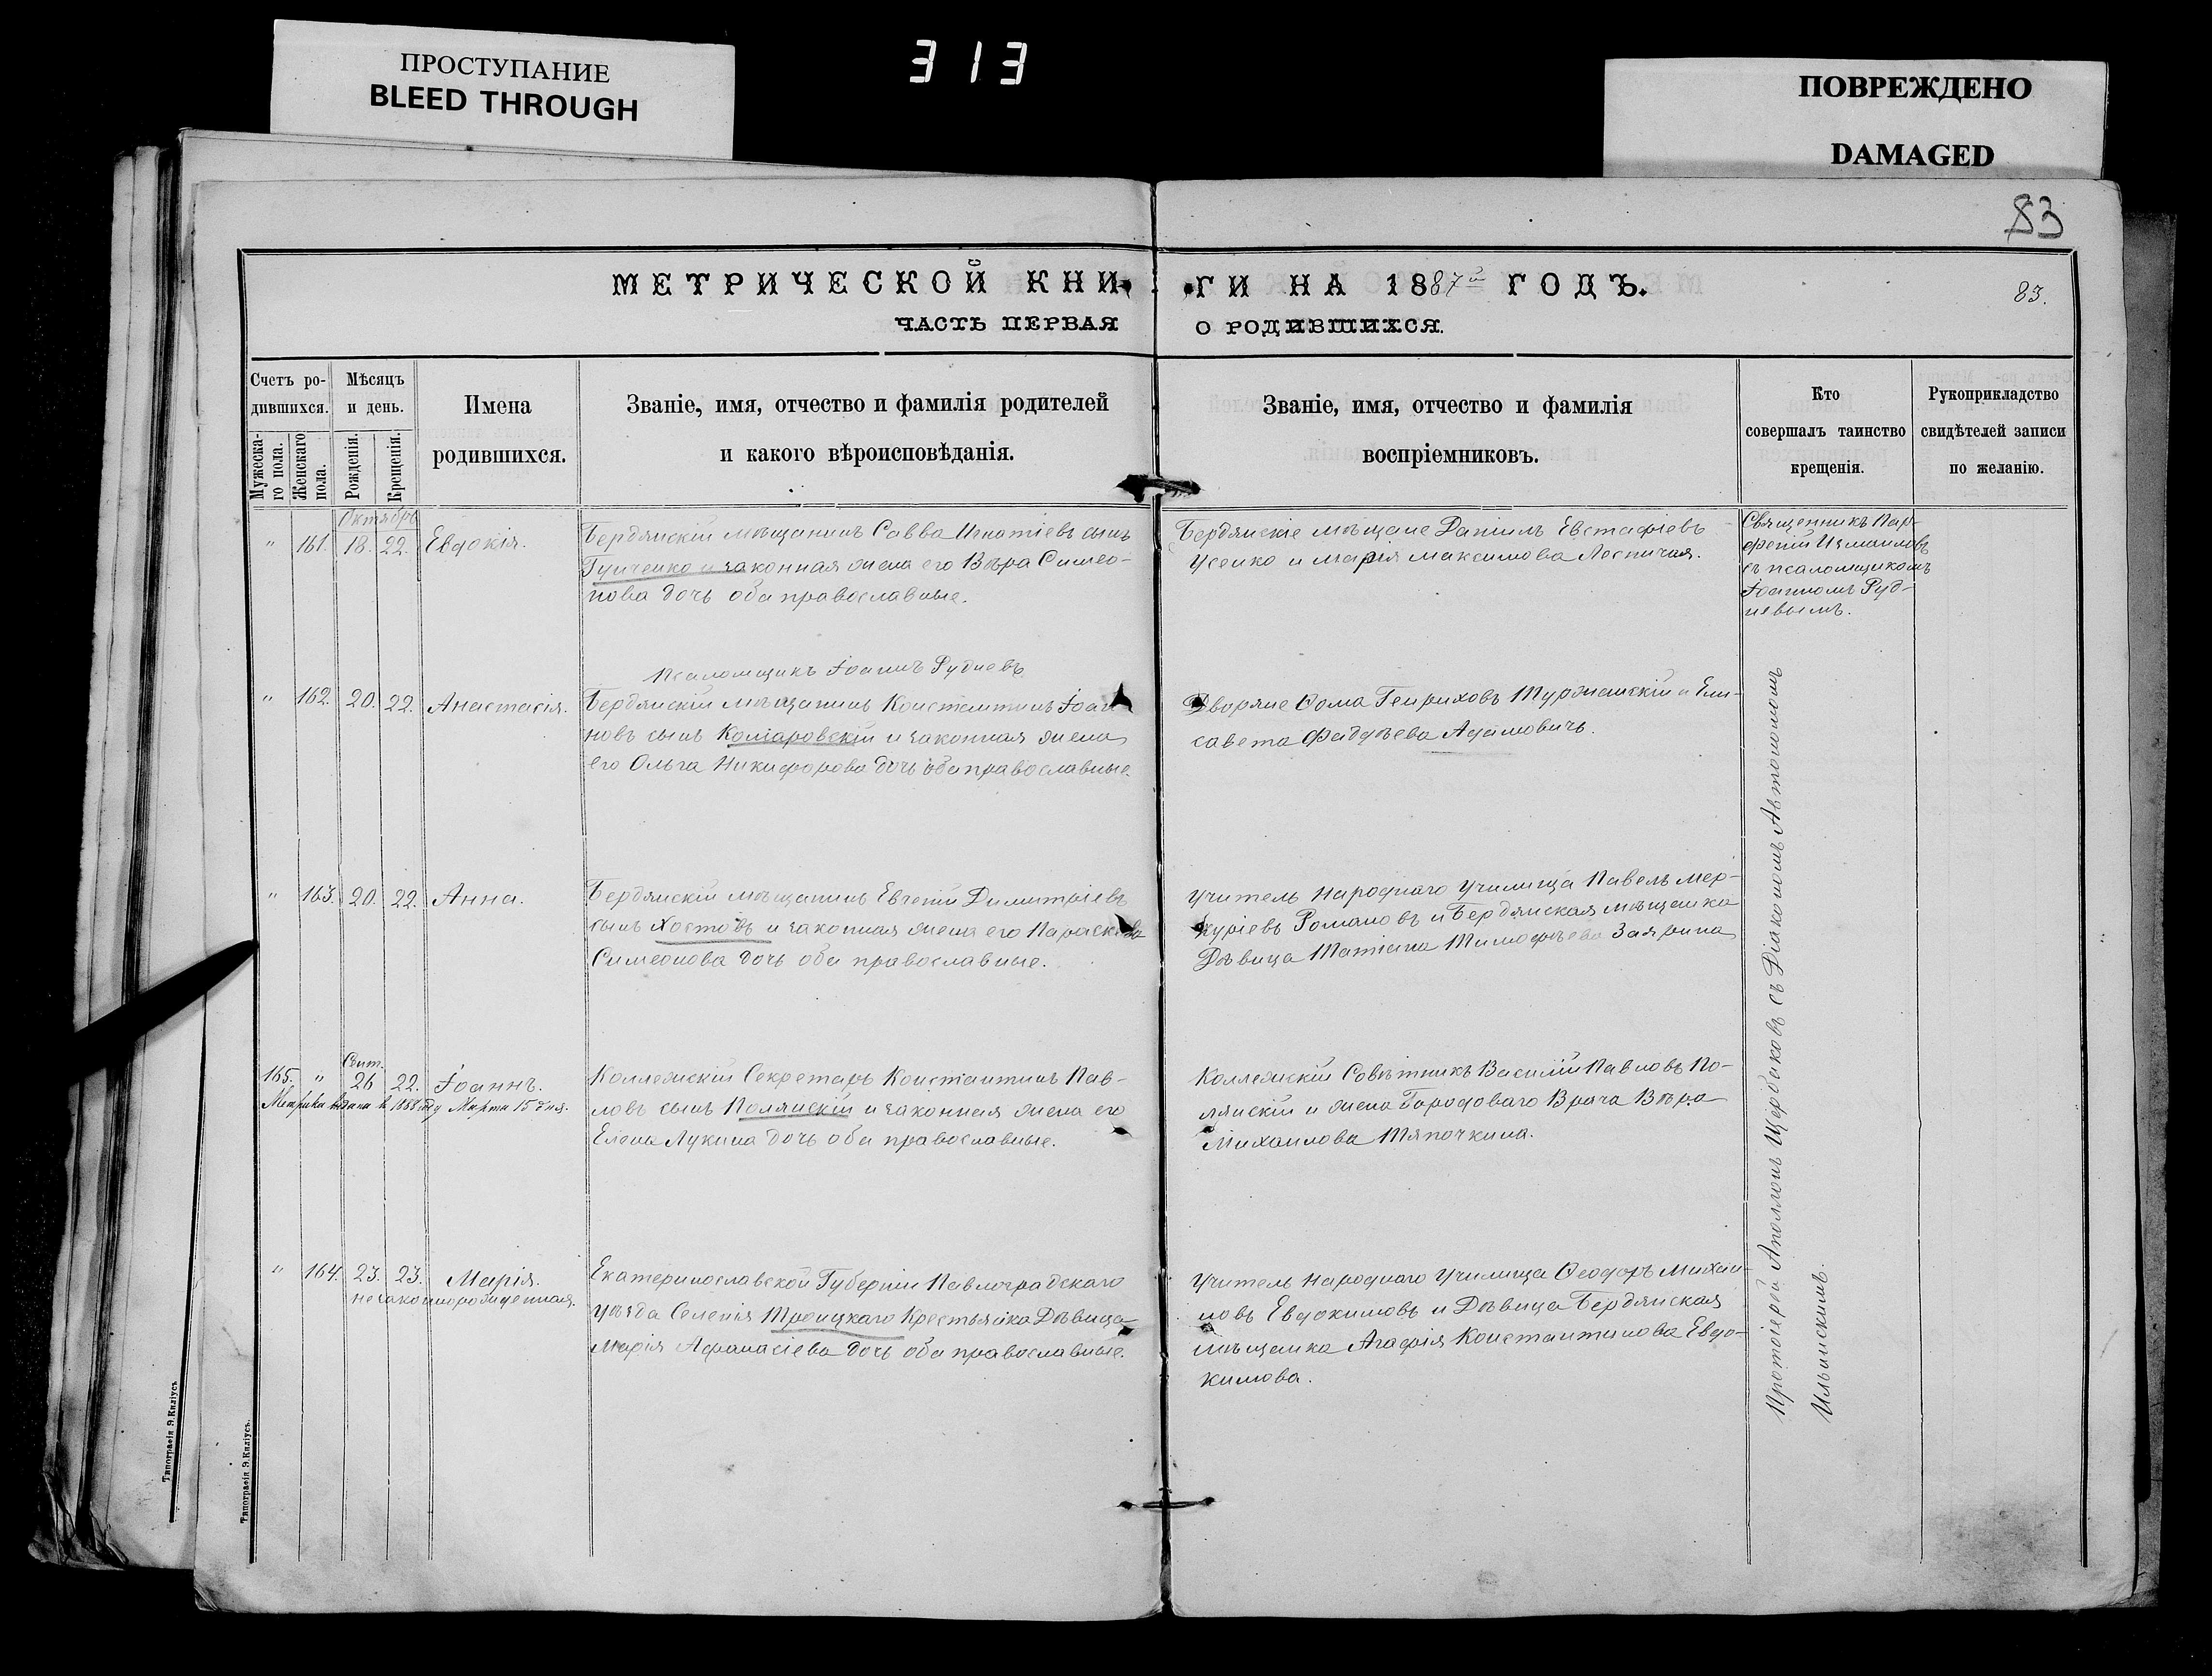 ПРОСТУПАНИЕ
BLEED THROUGH
313
ПОВРЕЖДЕНО
DAMAGED
83
МЕТРИЧЕСКОЙ КНИ
ГИ НА 1887й ГОДЪ.
83.
ЧАСТЬ ПЕРВАЯ
О РОДИВШИХСЯ.
Счетъ ро-
дившихся.
Мужеска-
го пола.
Женскаго
пола.
Мѣсяцъ
и день.
Рожденія.
Крещенія.
Имена
родившихся.
Званіе, имя, отчество и фамилія родителей
и какого вѣроисповѣданія.
Званіе, имя, отчество и фамилія
воспріемниковъ.
Кто
совершалъ таинство
крещенія.
Рукоприкладство
свидѣтелей записи
по желанію.
Октябрь
" 161. 18. 22. Евдокія.
Бердянскій мѣщанинъ Савва Игнатіевъ сынъ
и законная жена его Вѣра Симео-
нова дочь оба православные.
Бердянскіе мѣщане Даніилъ Евстафіевъ
Усенко и Марія Максимова
Священникъ Пар-
феній Измаиловъ
съ псаломщикомъ
Іоанномъ Руд-
невымъ.
Псаломщикъ Іоаннъ Рудневъ
" 162. 20. 22. Анастасія.
Бердянскій мѣщанинъ Константинъ Іоан-
новъ сынъ Комаровскій и законная жена
его Ольга Никифорова дочь оба православные.
Дворяне Ѳома Генриховъ Туржанскій и Ели-
савета Фаддѣева Адамовичъ.
" 163. 20. 22. Анна.
Бердянскій мѣщанинъ Евгеній Димитріевъ
сынъ Хостовъ и законная жена его Параскева
Симеонова дочь оба православные.
Учитель Народнаго Училища Павелъ Мер-
куріевъ Романовъ и Бердянская мѣщанка
Дѣвица Татіана Тимофѣева Заярина
Сент.
165. " 26 22. Іоаннъ.
Метрика выдана в 1888 году Марта 15 дня.
Коллежскій Секретарь Константинъ Пав-
ловъ сынъ Полянскій и законная жена его
Елена Лукина дочь оба православные.
Коллежскій Совѣтникъ Василій Павловъ По-
лянскій и жена Городоваго Врача Вѣра
Михаилова Тяпочкина.
" 164. 23. 23. Марія.
незаконнорожденная.
Екатеринославской Губерніи Павлоградскаго
уѣзда Селенія Троицкаго Крестьянка Дѣвица
Марія Афанасіева дочь оба православные.
Учитель Народнаго Училища Ѳеодоръ Михаи-
ловъ Евдокимовъ и Дѣвица Бердянская
мѣщанка Агафія Константинова Евдо-
кимова.
Протоіерей Аполлонъ Щербаковъ съ Діакономъ Автономомъ
Ильинскимъ.
Типографія Э.Киліусъ
Типографія Э.Киліусъ.